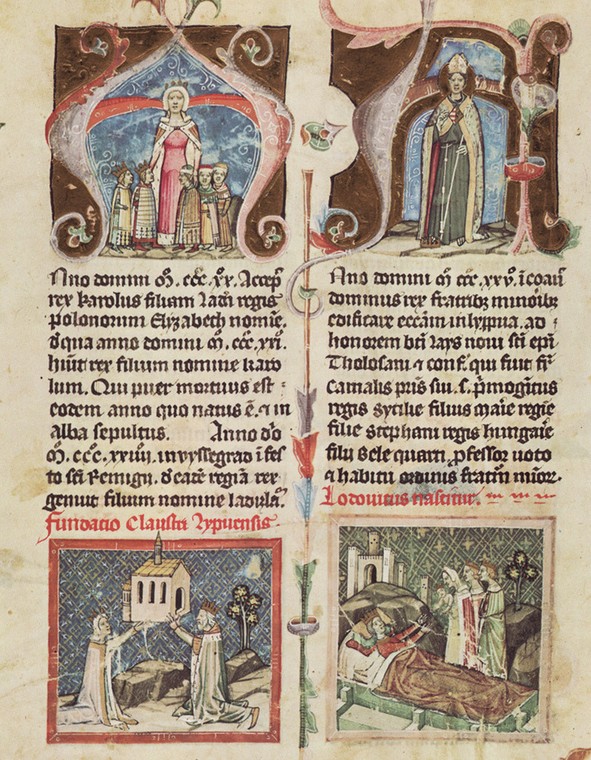 Anno domini M. ccc. xx. Accep
rex karolus filiam ladil regis
polonorum Elyzabeth nomie.
d'qua anno domini M. ccc. xxi.
huit rex filium nomine karo
lum. Qui puer mortuus est :
eodem anno quo natus ē. ⁊ in
alba sepultus. Anno dō
M. ccc. xxiiii. in vyssegrad ī fes
to sc̄i Remigii. d'eadē regīa rex
genuit filium nomine ladizlā.
Fundacio claustri Lyppuensis
Anno domini M. ccc. xxv.
dominus rex fratribꝫ minoribꝫ
edificare ecc̄am in lyppua. ad
honorem bt̄i lays noui sc̄i ep̄i
Tholosani ⁊ conf. qui fuit fr̄
carnalis pr̄is sui. s. p̄mogītus
regis sycilie filius mar̄ie regīe
filie stephani regis hungarie
filii Bele quarti. ꝓfessor uoto
⁊ habitu ordinis fratrū minor.
Lodouicus nascitur.